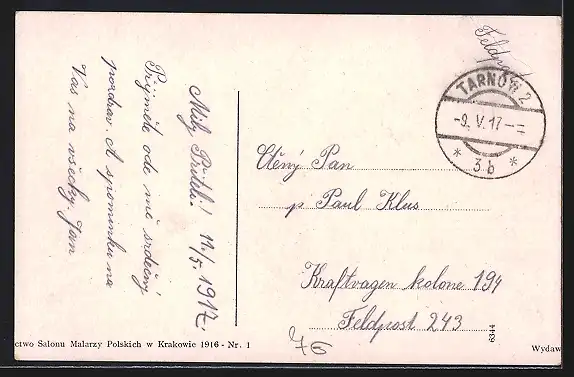 Feldpost
TARNÓW 2
-9. V. 17-
* 3b *
Milý Příteli! 11/5. 1917.
Prijměte ode mě srdečný
pozdrav. A spominku na
Vas na všecky Jan
Ctěný Pan
p Paul Klus
Kraftwagen kolone 194
Feldpost 243
76
6344
ctwo Salonu Malarzy Polskich w Krakowie 1916 - Nr. 1
Wydaw